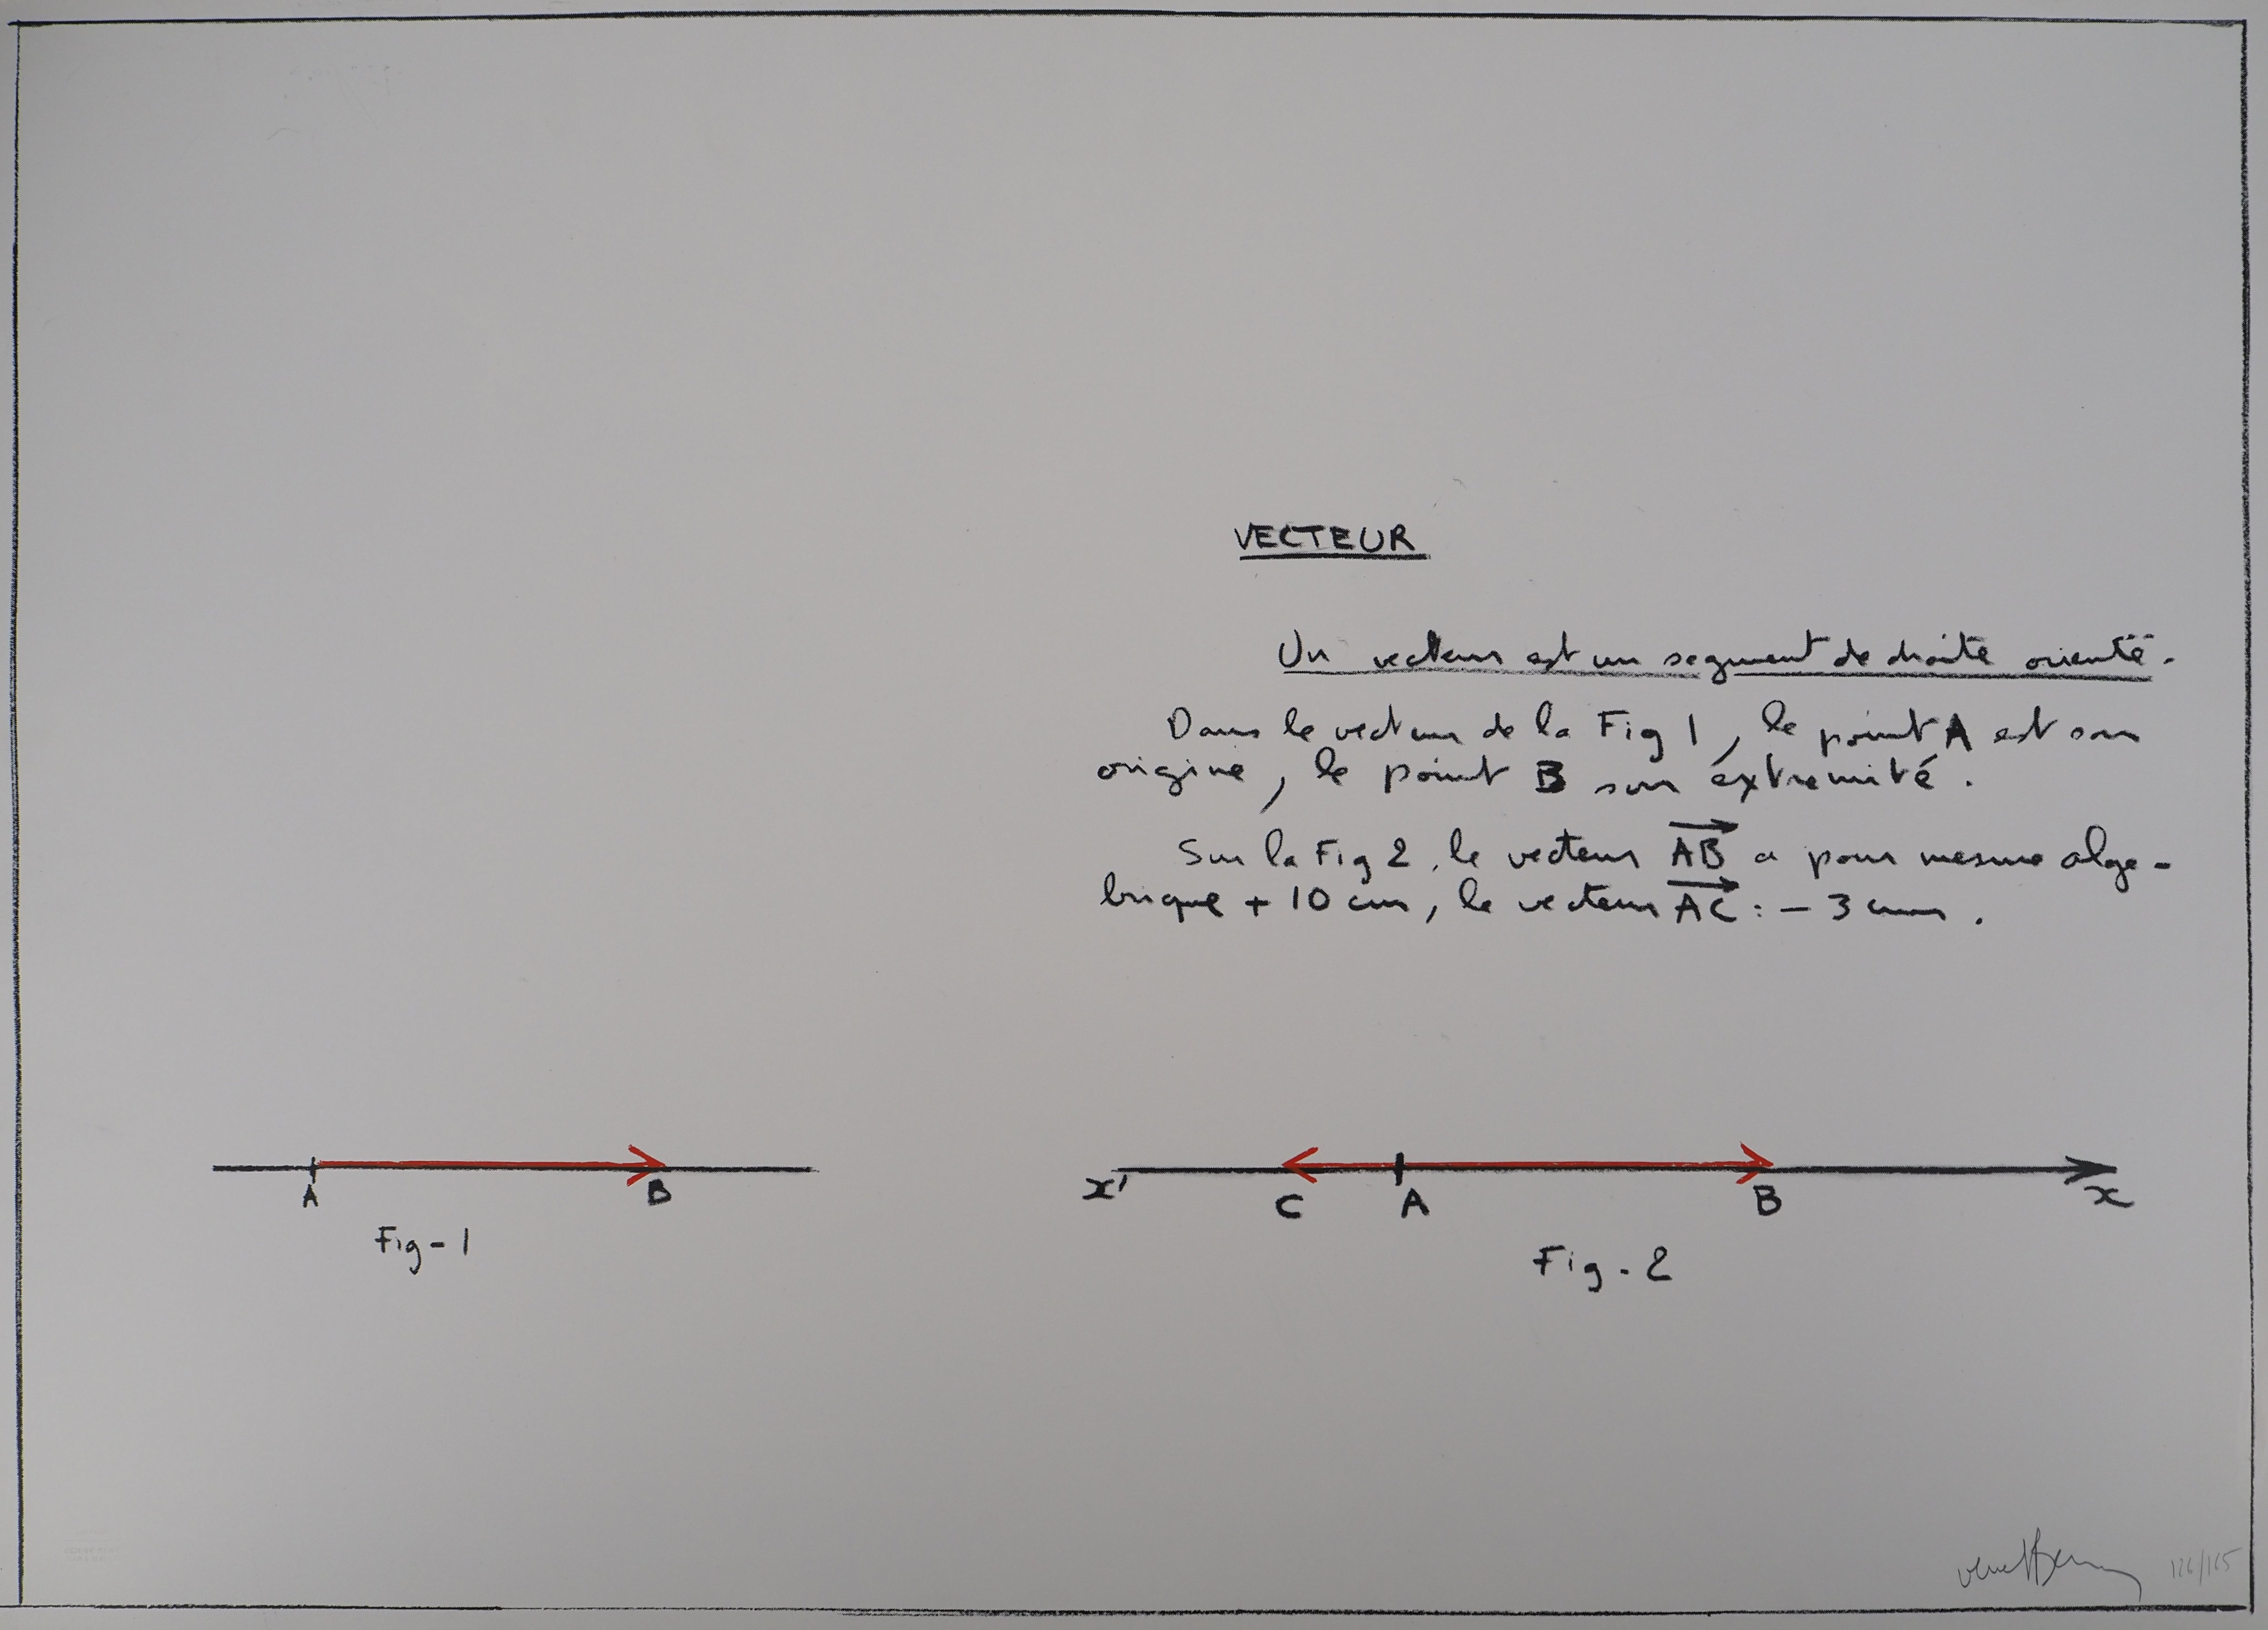 VECTEUR
Un vecteur est un segment de droite orienté.
Dans le vecteur de la Fig 1, le point A est son
origine, le point B son éxtremité.
Sur la Fig 2, le vecteur AB a pour mesure alge-
brique + 10 cm, le vecteur AC : - 3 cm.
A B
Fig-1
x' C A B x
Fig-2
126/165